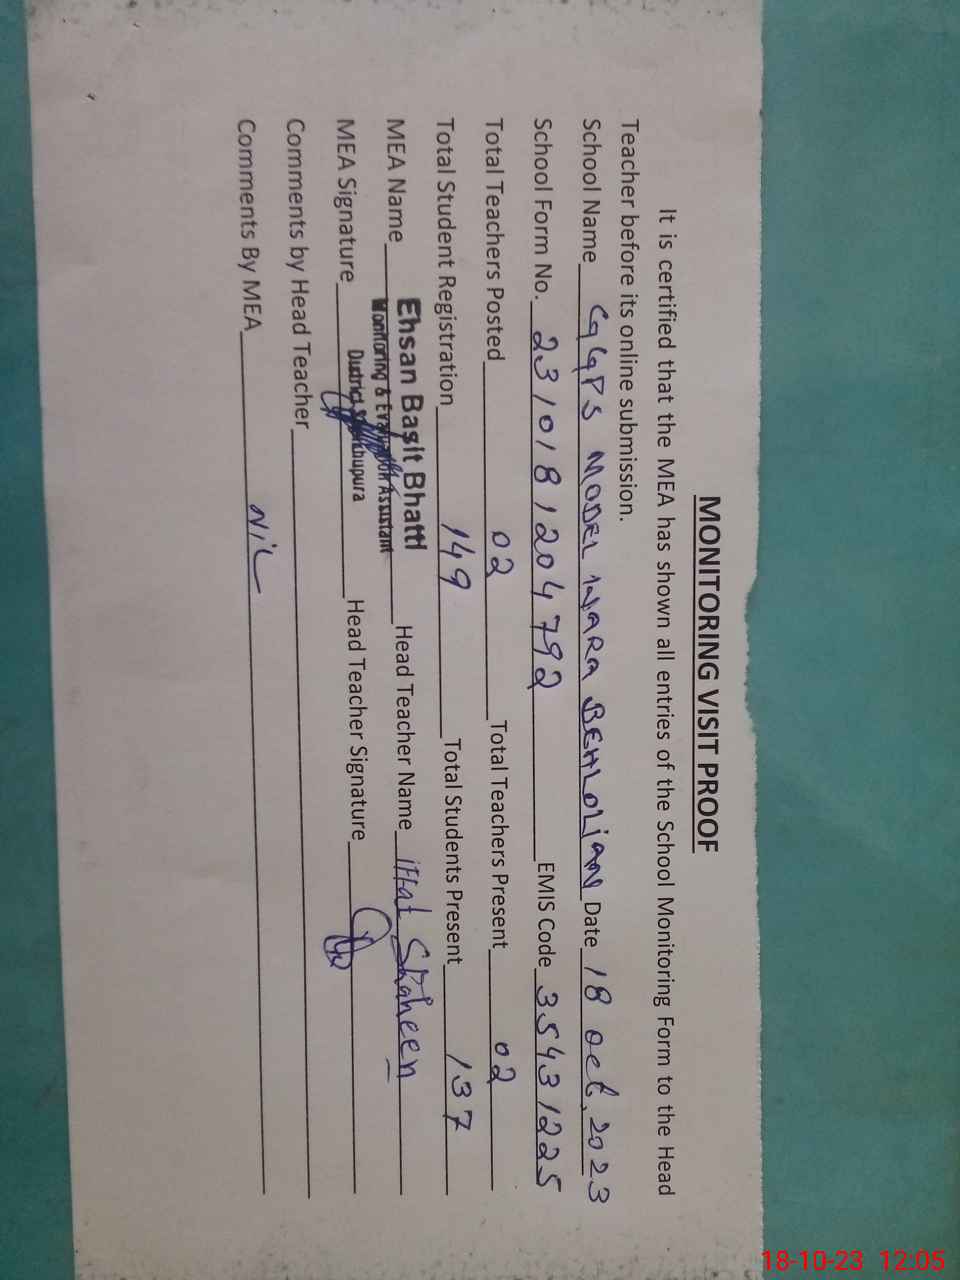 MONITORING VISIT PROOF
It is certified that the MEA has shown all entries of the School Monitoring Form to the Head
Teacher before its online submission.
School Name GGPS MODEL INARA BEHLOLIAN Date 18 Oct, 2023
School Form No. 2310181204792 EMIS Code 35431225
Total Teachers Posted 02 Total Teachers Present 02
Total Student Registration 149 Total Students Present 137
MEA Name Ehsan Basit Bhatti Head Teacher Name iffat Shaheen
Monitoring & Evaluation Assistant
MEA Signature District Sheikhupura Head Teacher Signature
Comments by Head Teacher
Comments By MEA NIL
18-10-23 12:05